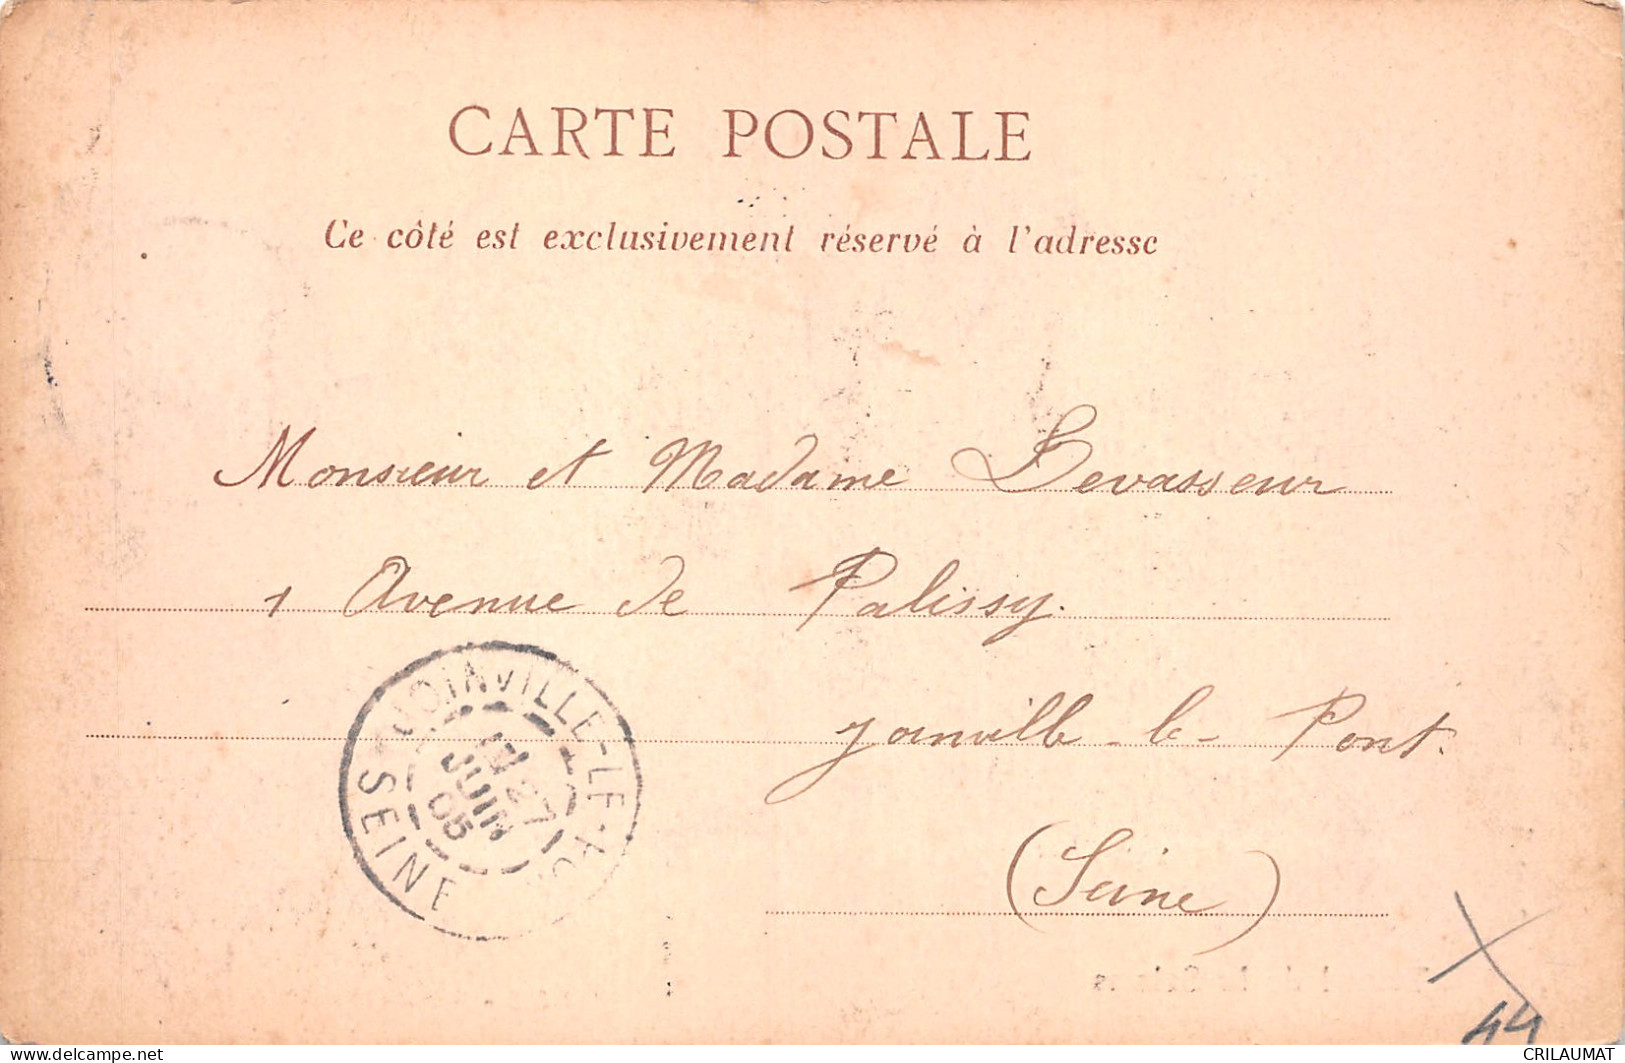 CARTE POSTALE
Ce côté est exclusivement réservé à l'adresse
Monsieur et Madame Levasseur
1 Avenue de Palissy.
Joinville-le-Pont.
(Seine)
JOINVILLE-LE-
27
JUIN
05
SEINE
44
CRILAUMAT